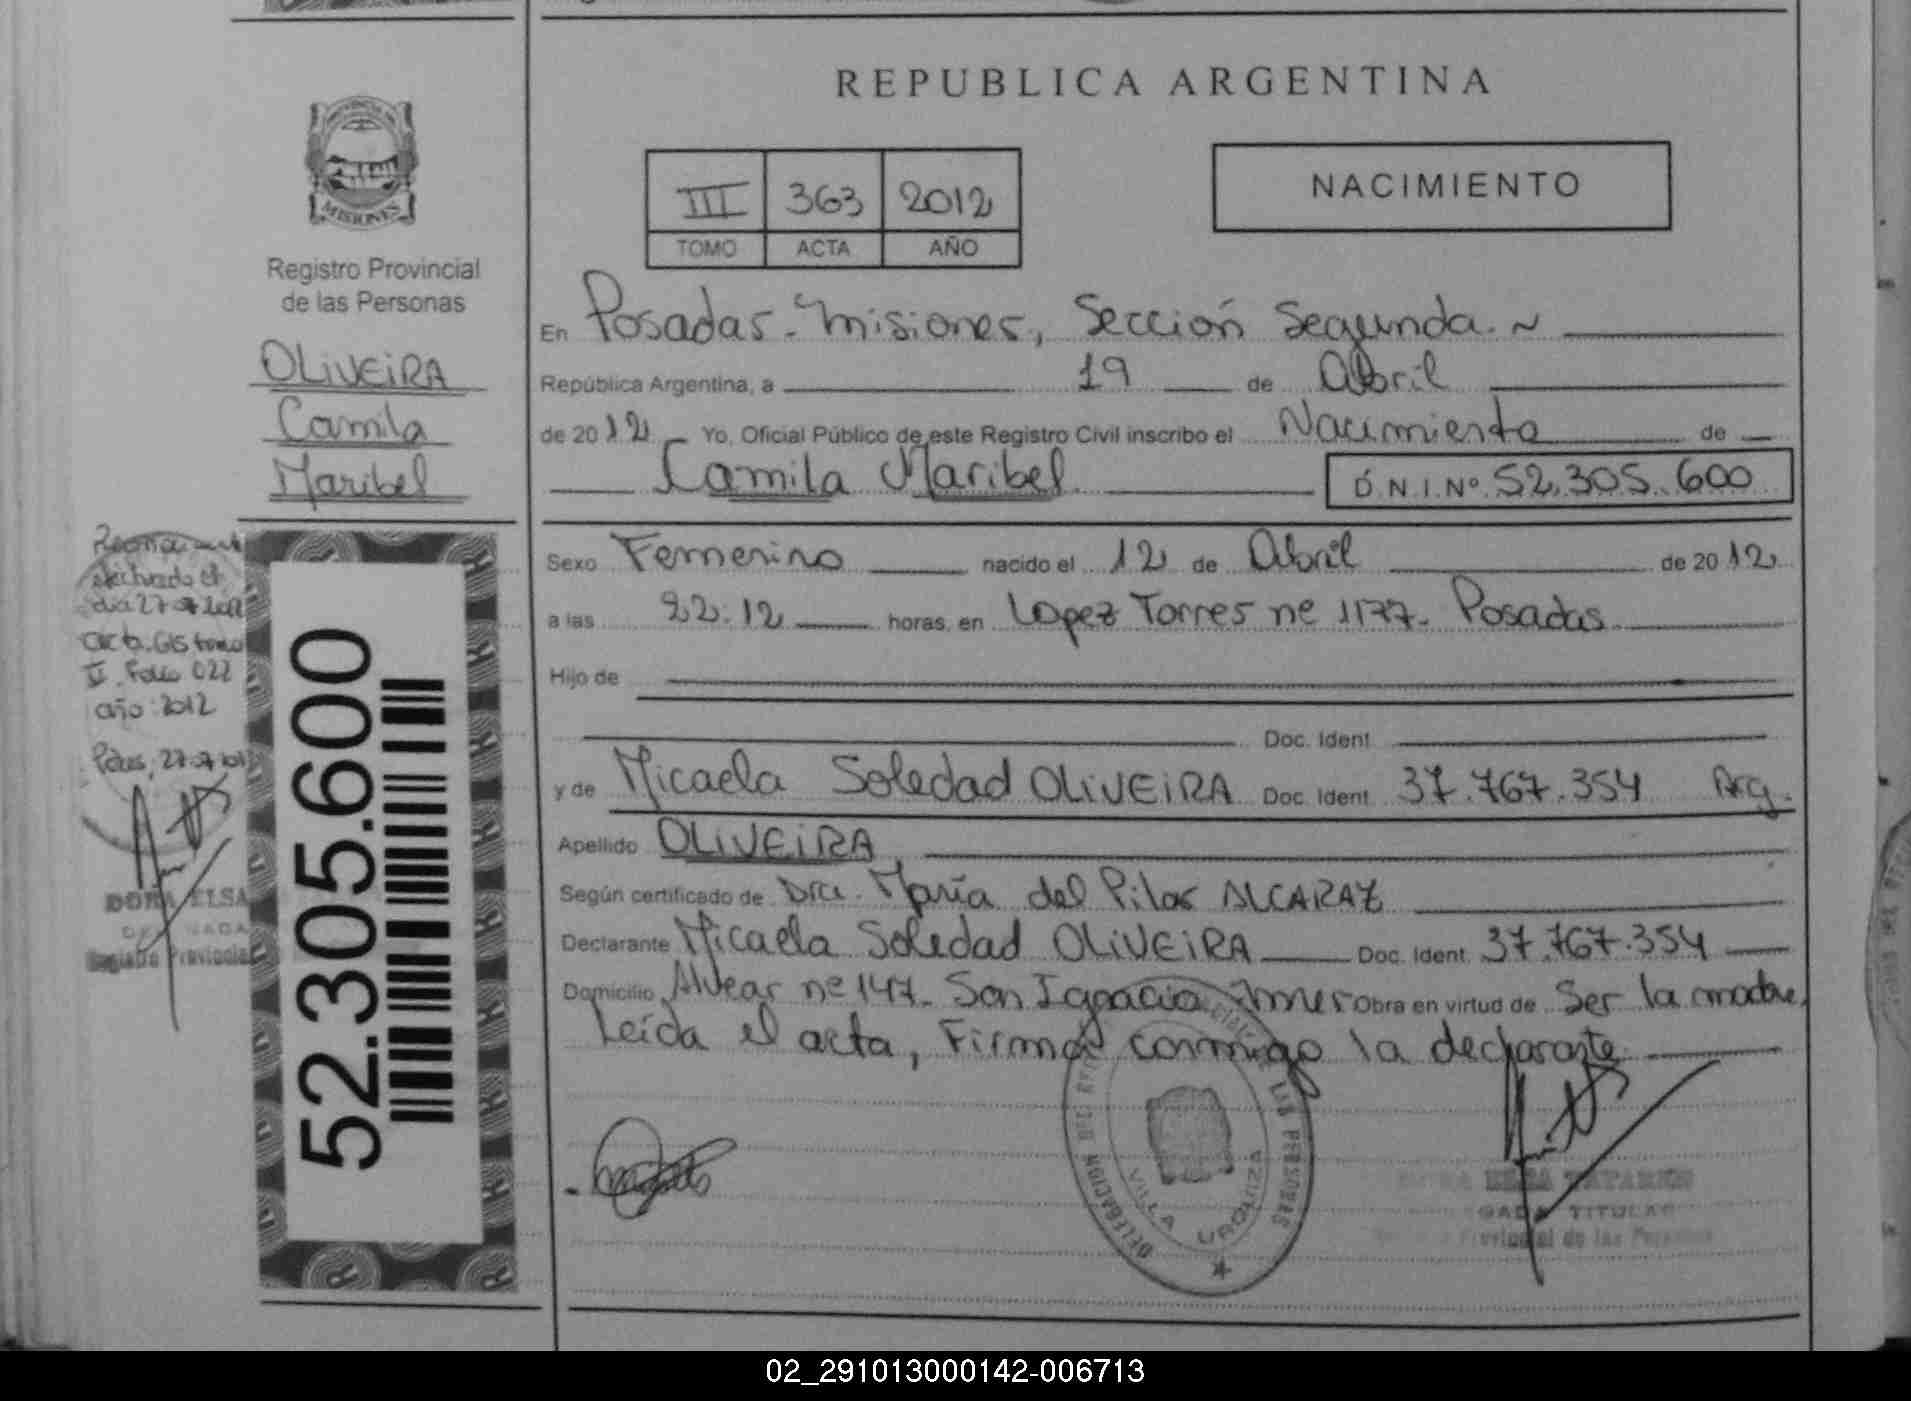 REPUBLICA ARGENTINA
MISIONES
Registro Provincial
de las Personas
OLIVEIRA
Camila
Maribel
III 363 2012
TOMO ACTA AÑO
NACIMIENTO
En Posadas - Misiones, Sección Segunda. ~
República Argentina, a 19 de Abril
de 2012 Yo, Oficial Público de este Registro Civil inscribo el Nacimiento de
Camila Maribel D.N.I.Nº 52.305.600
Sexo Femenino nacido el 12 de Abril de 2012
a las 22:12 horas, en Lopez Torres nº 1177- Posadas
Hijo de
Doc. Ident
y de Micaela Soledad OLIVEIRA Doc. Ident 37.767.354 Arg.
Apellido OLIVEIRA
Según certificado de Dra. María del Pilar ALCARAZ
Declarante Micaela Soledad OLIVEIRA Doc. Ident. 37.767.354
Domicilio Alvear nº 147- San Ignacio Obra en virtud de Ser la madre,
Leída el acta, Firma conmigo la declarante
efectuado el
dia 27 07 2012
acta. tomo
II. Folio 022
año: 2012
DOÑA ELSA
Registro Provincial
52.305.600
DELEGACION LAS PERSONAS
VILLA URQUIZA
ELSA
TITULAR
Provincial de las Personas
02_291013000142-006713